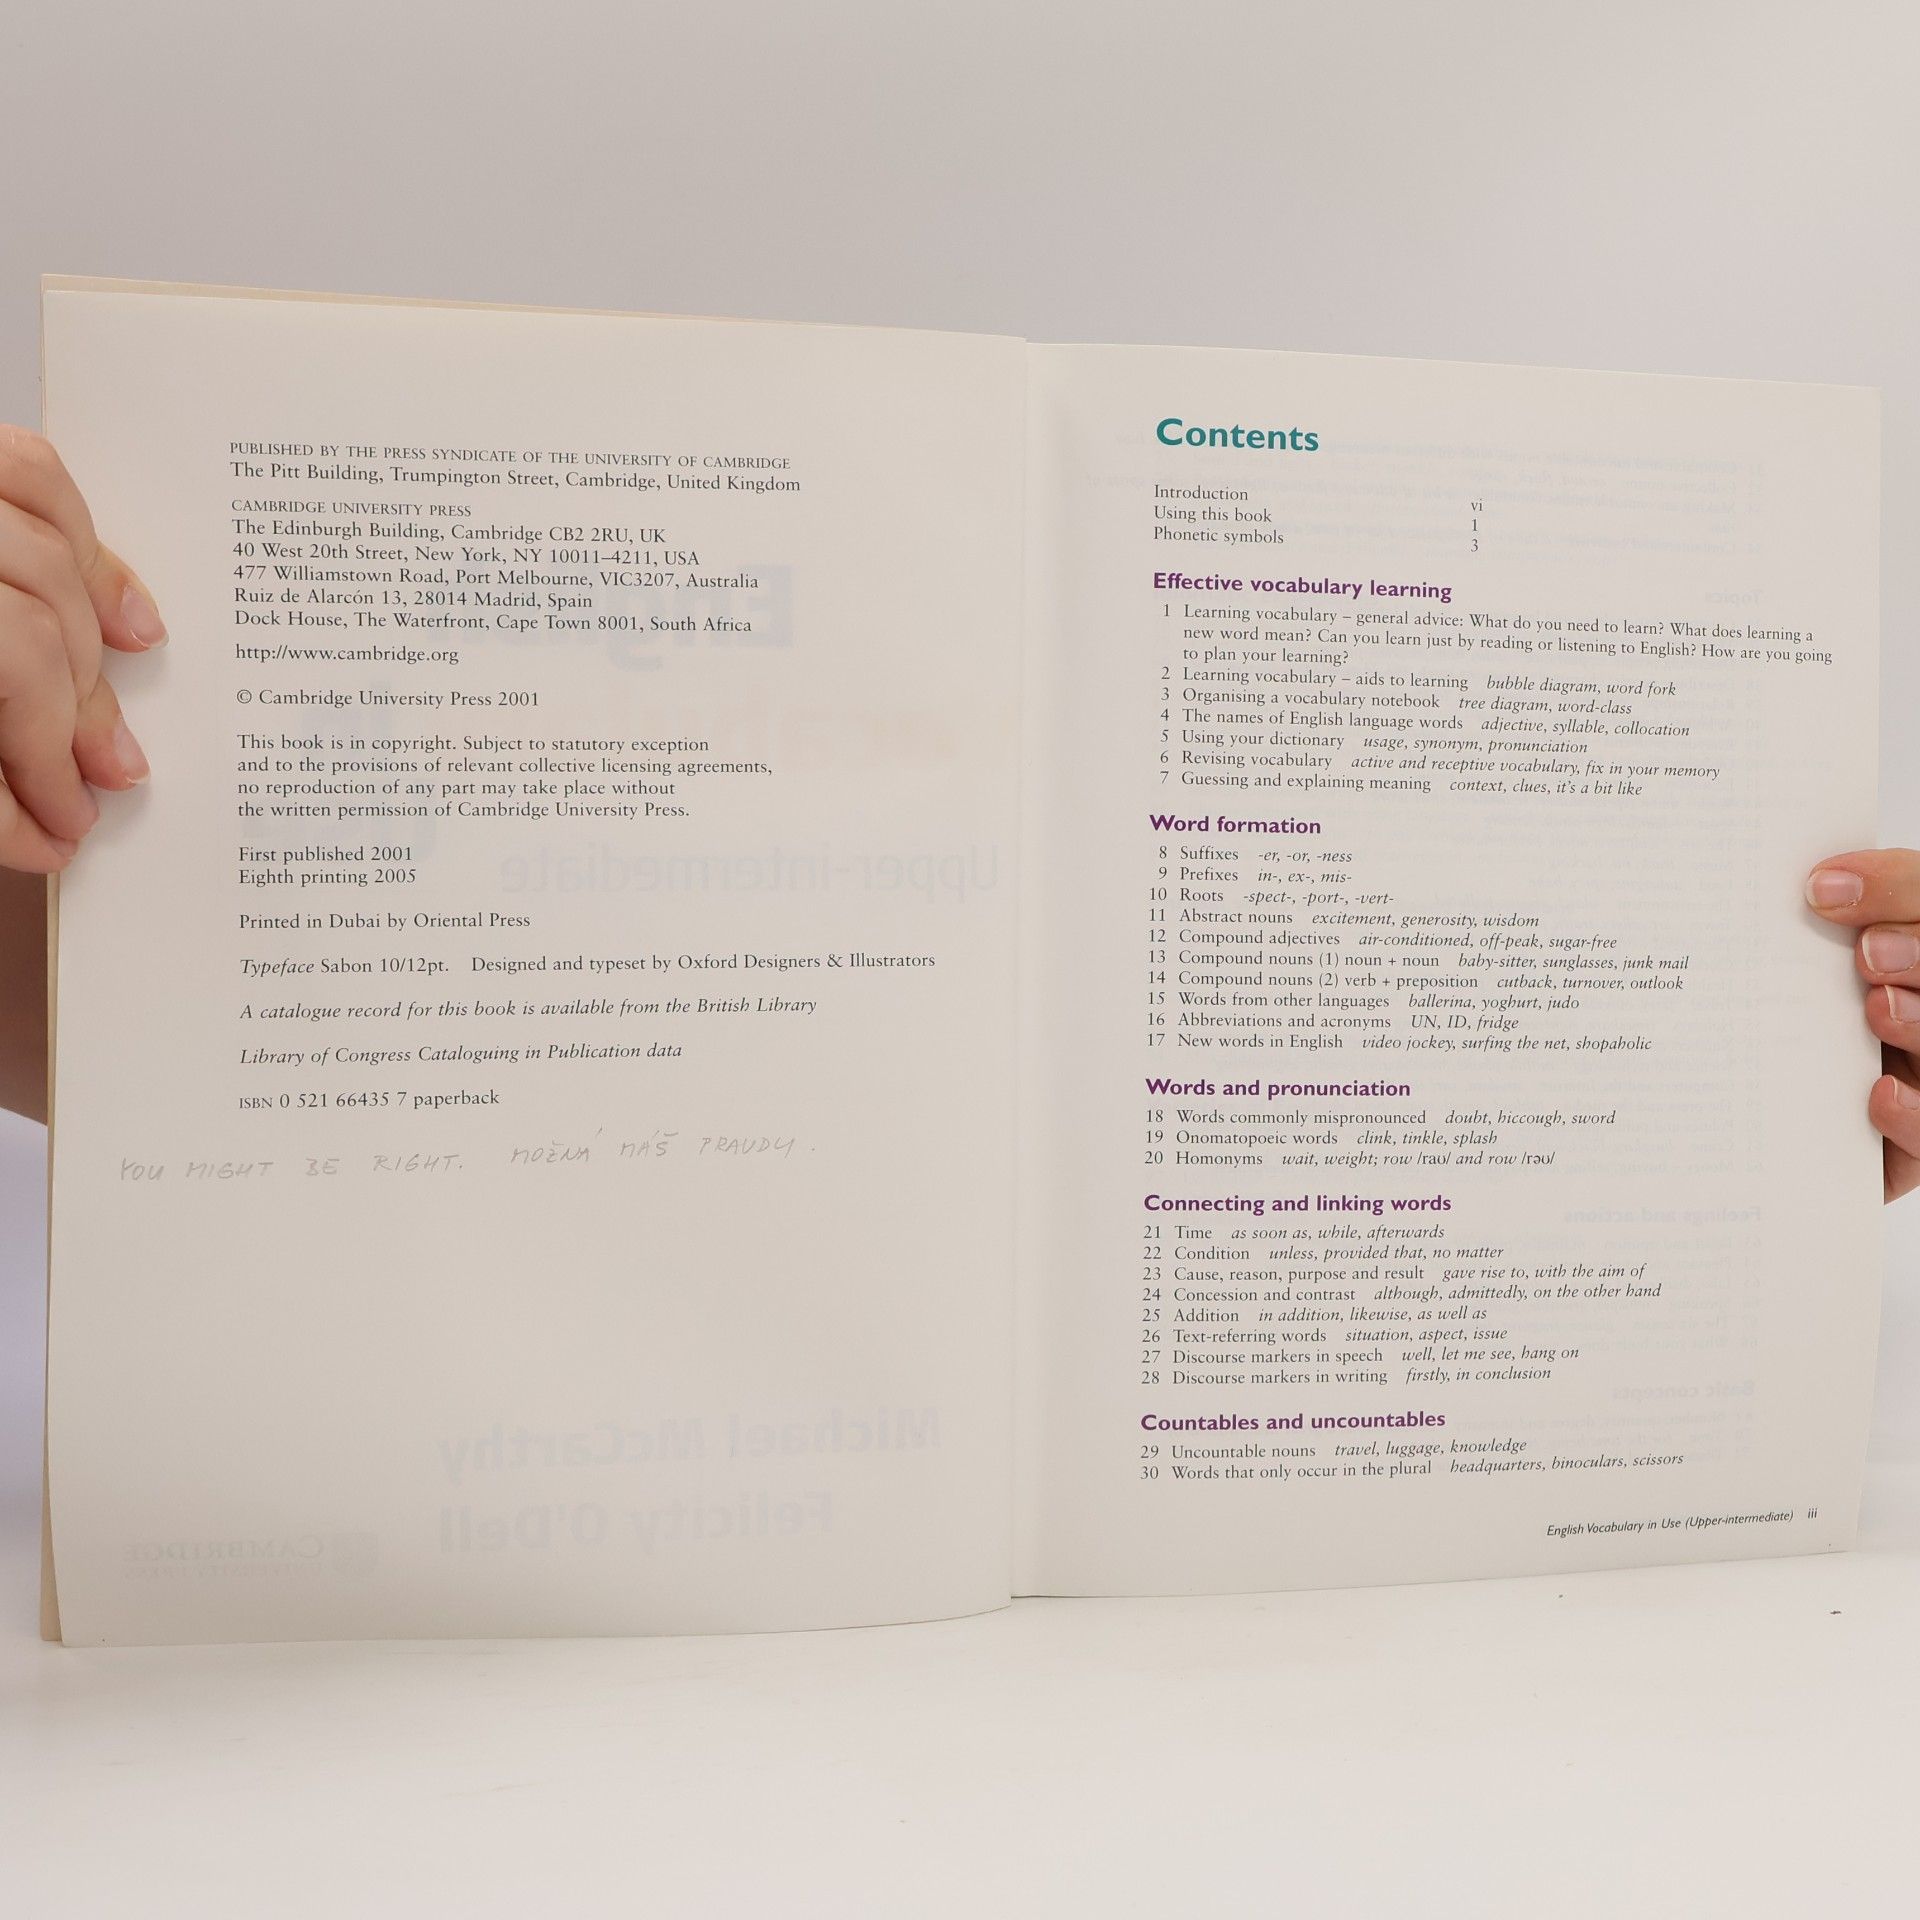 PUBLISHED BY THE PRESS SYNDICATE OF THE UNIVERSITY OF CAMBRIDGE
The Pitt Building, Trumpington Street, Cambridge, United Kingdom
CAMBRIDGE UNIVERSITY PRESS
The Edinburgh Building, Cambridge CB2 2RU, UK
40 West 20th Street, New York, NY 10011–4211, USA
477 Williamstown Road, Port Melbourne, VIC3207, Australia
Ruiz de Alarcón 13, 28014 Madrid, Spain
Dock House, The Waterfront, Cape Town 8001, South Africa
http://www.cambridge.org
© Cambridge University Press 2001
This book is in copyright. Subject to statutory exception
and to the provisions of relevant collective licensing agreements,
no reproduction of any part may take place without
the written permission of Cambridge University Press.
First published 2001
Eighth printing 2005
Printed in Dubai by Oriental Press
Typeface Sabon 10/12pt. Designed and typeset by Oxford Designers & Illustrators
A catalogue record for this book is available from the British Library
Library of Congress Cataloguing in Publication data
ISBN 0 521 66435 7 paperback
YOU MIGHT BE RIGHT. MOŽNÁ MÁŠ PRAVDU.
Contents
Introduction vi
Using this book 1
Phonetic symbols 3
Effective vocabulary learning
1 Learning vocabulary – general advice: What do you need to learn? What does learning a
new word mean? Can you learn just by reading or listening to English? How are you going
to plan your learning?
2 Learning vocabulary – aids to learning bubble diagram, word fork
3 Organising a vocabulary notebook tree diagram, word-class
4 The names of English language words adjective, syllable, collocation
5 Using your dictionary usage, synonym, pronunciation
6 Revising vocabulary active and receptive vocabulary, fix in your memory
7 Guessing and explaining meaning context, clues, it's a bit like
Word formation
8 Suffixes -er, -or, -ness
9 Prefixes in-, ex-, mis-
10 Roots -spect-, -port-, -vert-
11 Abstract nouns excitement, generosity, wisdom
12 Compound adjectives air-conditioned, off-peak, sugar-free
13 Compound nouns (1) noun + noun baby-sitter, sunglasses, junk mail
14 Compound nouns (2) verb + preposition cutback, turnover, outlook
15 Words from other languages ballerina, yoghurt, judo
16 Abbreviations and acronyms UN, ID, fridge
17 New words in English video jockey, surfing the net, shopaholic
Words and pronunciation
18 Words commonly mispronounced doubt, hiccough, sword
19 Onomatopoeic words clink, tinkle, splash
20 Homonyms wait, weight; row /raʊ/ and row /rəʊ/
Connecting and linking words
21 Time as soon as, while, afterwards
22 Condition unless, provided that, no matter
23 Cause, reason, purpose and result gave rise to, with the aim of
24 Concession and contrast although, admittedly, on the other hand
25 Addition in addition, likewise, as well as
26 Text-referring words situation, aspect, issue
27 Discourse markers in speech well, let me see, hang on
28 Discourse markers in writing firstly, in conclusion
Countables and uncountables
29 Uncountable nouns travel, luggage, knowledge
30 Words that only occur in the plural headquarters, binoculars, scissors
English Vocabulary in Use (Upper-intermediate) iii